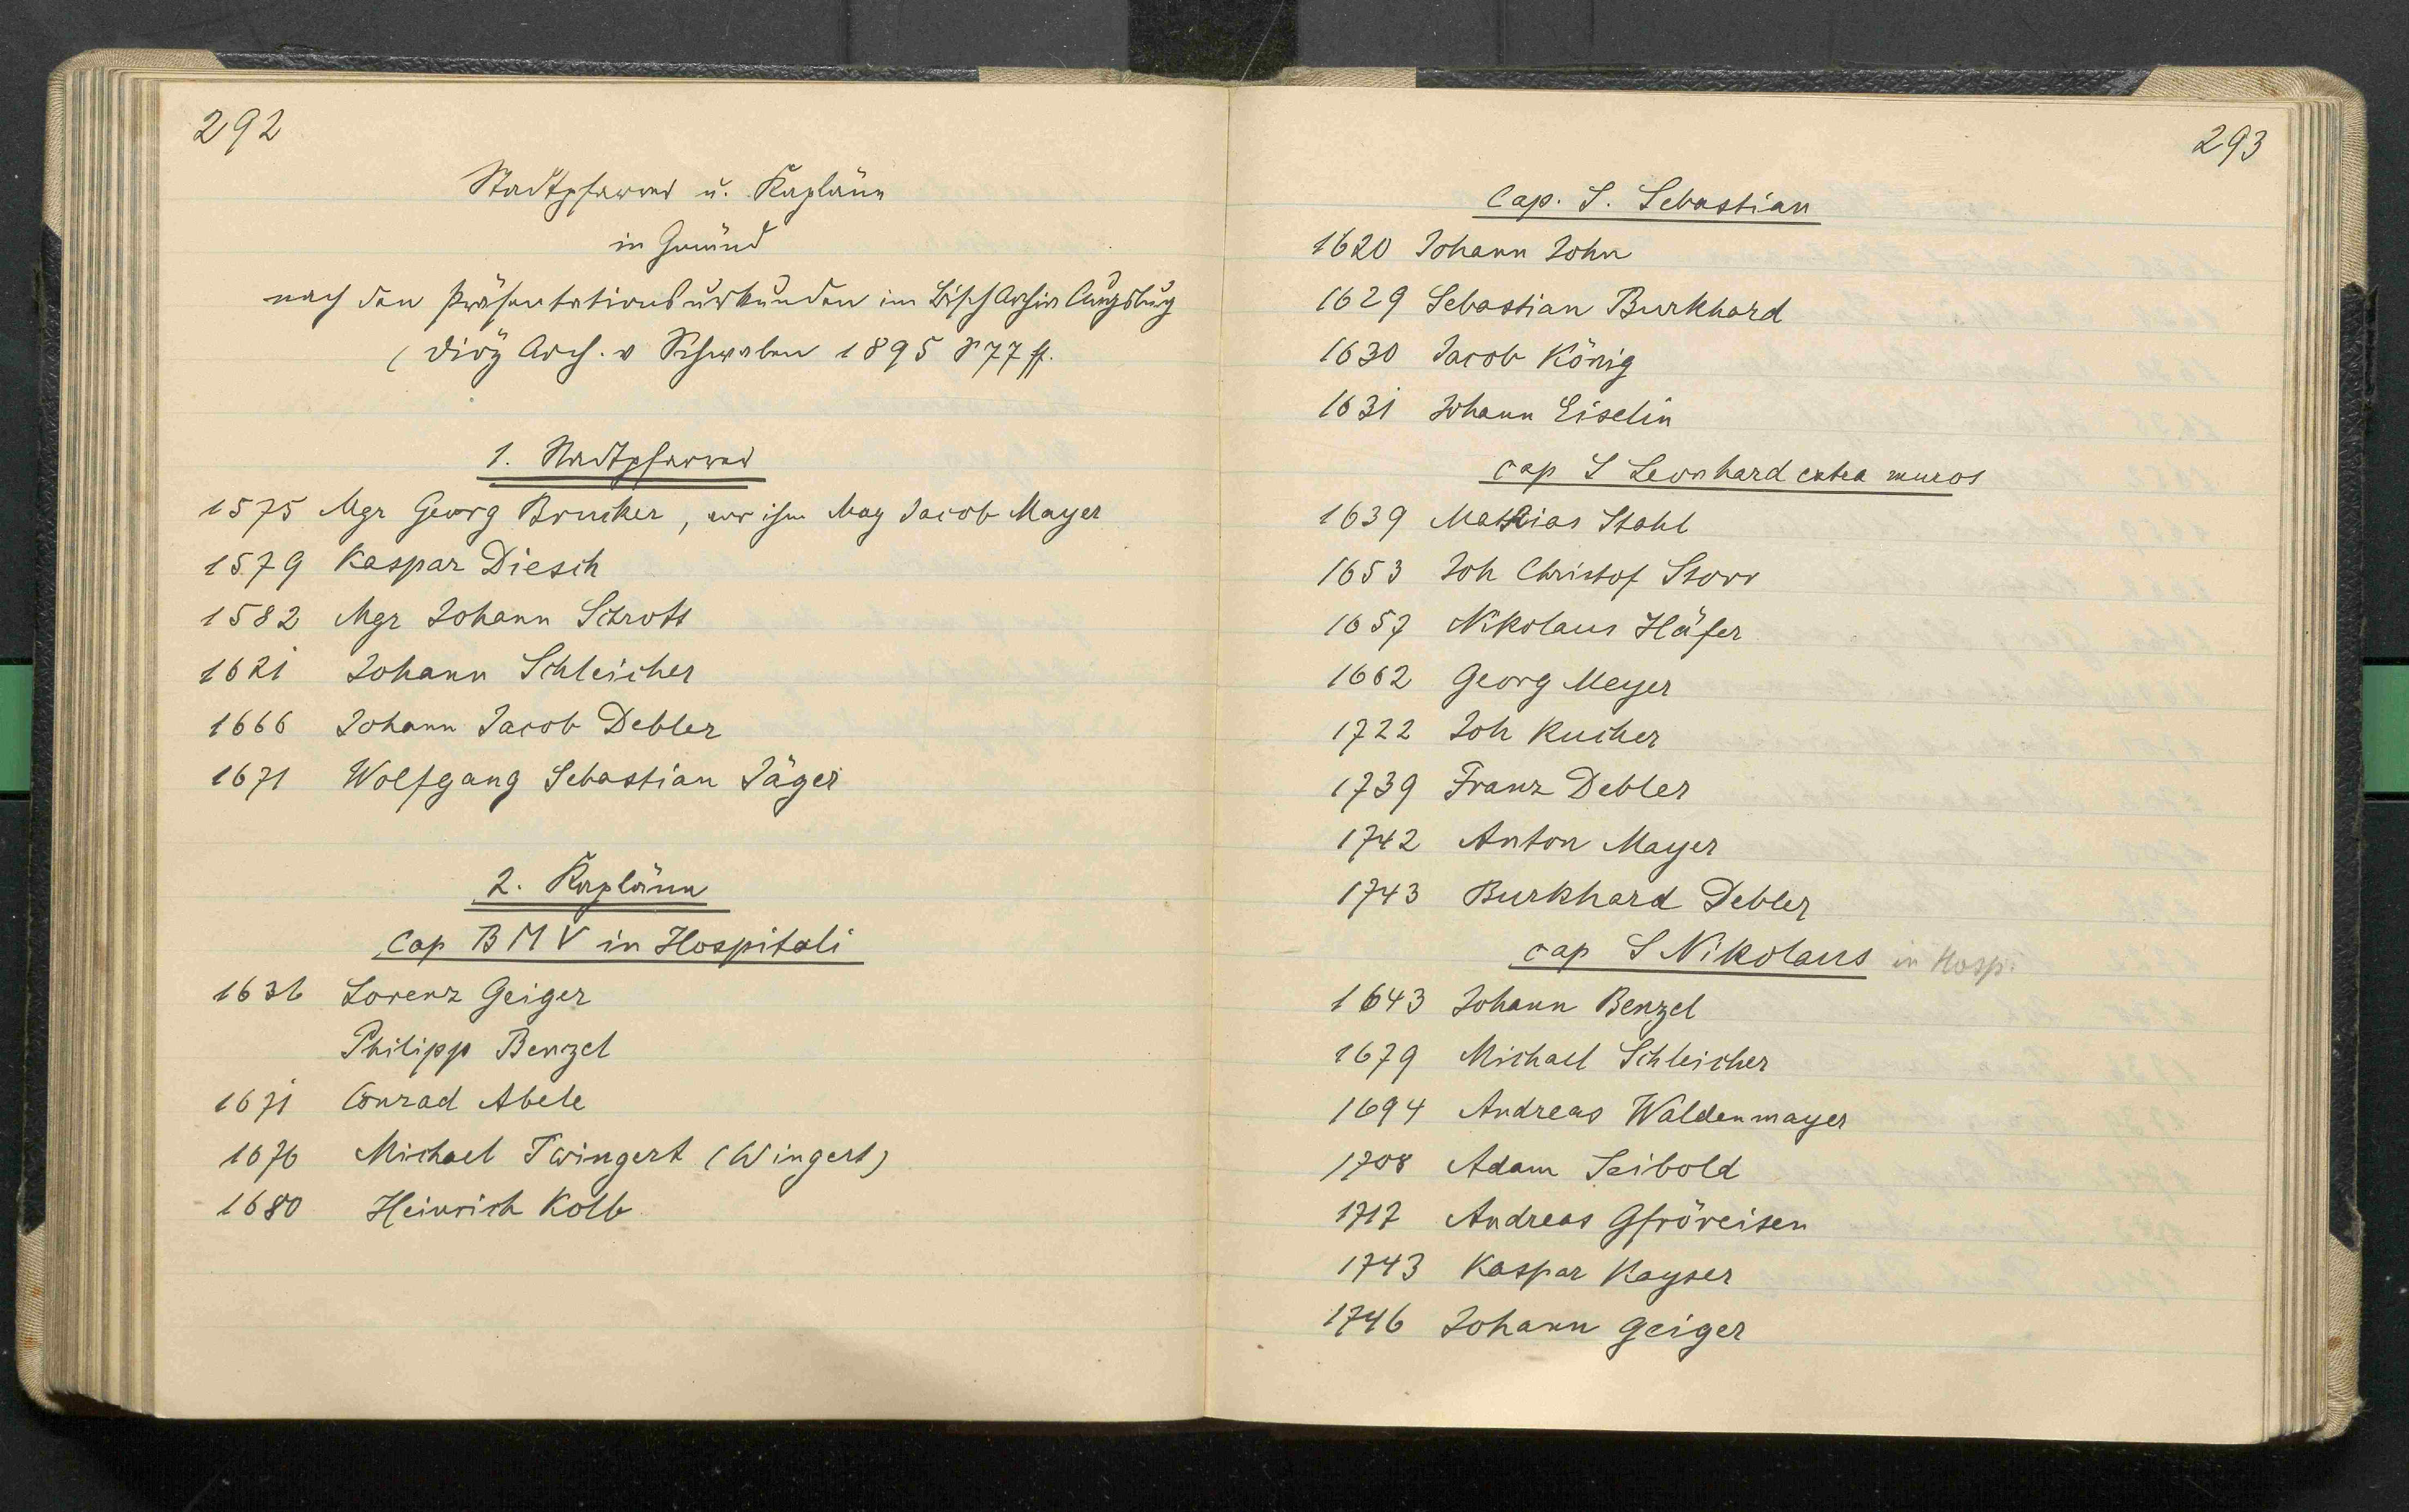 292
Stadtpfarrer u. Kapläne
in Gmünd
nach den Präsentationsurkunden im Bisch Archiv Augsburg
( Diöz Arch. v Schwaben 1895 S 77 ff.
1. Stadtpfarrer
1575 Mgr Georg Brucker, vor ihm Mag Jacob Mayer
1579 Kaspar Diesch
1582 Mgr Johann Schrott
1621 Johann Schleicher
1666 Johann Jacob Debler
1671 Wolfgang Sebastian Jäger
2. Kapläne
Cap B M V in Hospitali
1636 Lorenz Geiger
Philipp Benzel
1671 Conrad Abele
1676 Michael Twingert (Wingert)
1680 Heinrich Kolb
293
Cap. S. Sebastian
1620 Johann John
1629 Sebastian Burkhard
1630 Jacob König
1631 Johann Eiselin
cap S Leonhard extra muros
1639 Mathias Stahl
1653 Joh Christof Storr
1657 Nikolaus Häfer
1662 Georg Meyer
1722 Joh Rucher
1739 Franz Debler
1742 Anton Mayer
1743 Burkhard Debler
cap S Nikolaus in Hosp.
1643 Johann Benzel
1679 Michael Schleicher
1694 Andreas Waldenmayer
1708 Adam Seibold
1717 Andreas Gfröreisen
1743 Kaspar Kayser
1746 Johann Geiger